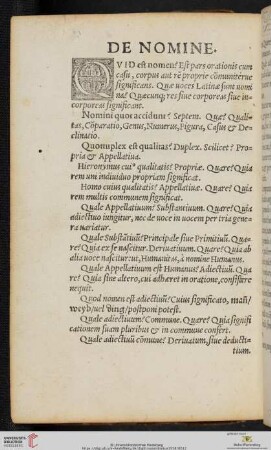 DE NOMINE.
QVID est nomen? Est pars orationis cum
casu, corpus aut rē proprie cōmuniterue
significans. Quæ uoces Latinæ sunt nomi
na? Quæcunq; res siue corporeas siue in-
corporeas significant.
Nomini quot accidunt? Septem. Quæ? Quali-
tas, Cōparatio, Genus, Numerus, Figura, Casus &
clinatio.
Quotuplex est qualitas? Duplex. Scilicet? Pro-
pria & Appellatiua.
Hieronymus cuiᵒ qualitatis? Propriæ. Quare? Quia
rem uni indiuiduo propriam significat.
Homo cuius qualitatis? Appellatiuæ. Quare? Quia
rem multis communem significat.
Quale Appellatiuum? Substantiuum. Quare? Quia
adiectiuo iungitur, nec de uoce in uocem per tria gene-
ra uariatur.
Quale Substātiuū? Principale siue Primitiuū. Qua-
re? Quia ex se nascitur. Deriuatiuum. Quare? Quia ab
alia uoce nascitur: ut, Humanitas, à nomine Humanus.
Quale Appellatiuum est Humanus? Adiectiuū. Qua
re? Quia sine altero, cui adhæret in oratione, consistere
nequit.
Quod nomen est adiectiuū? Cuius significato, man/
weyb/ uel ding/ postponi potest.
Quale adiectiuum? Commune. Quare? Quia signifi-
cationem suam pluribus & in commune confert.
Quale adiectiuū cōmune? Deriuatum, siue deducti-
tium.